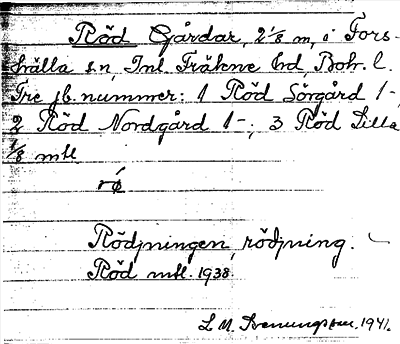 Röd Gårdar, 2 1/8 m, i Fors-
hälla sn, Inl. Fräkne hd, Boh. l.
Tre jb. nummer: 1 Röd Sörgård 1-,
2 Röd Nordgård 1-; 3 Röd Lilla
1/8 mtl
rǿ
Rödjningen, rödjning.
Röd mtl. 1938.
L M. Svenungsson. 1941.